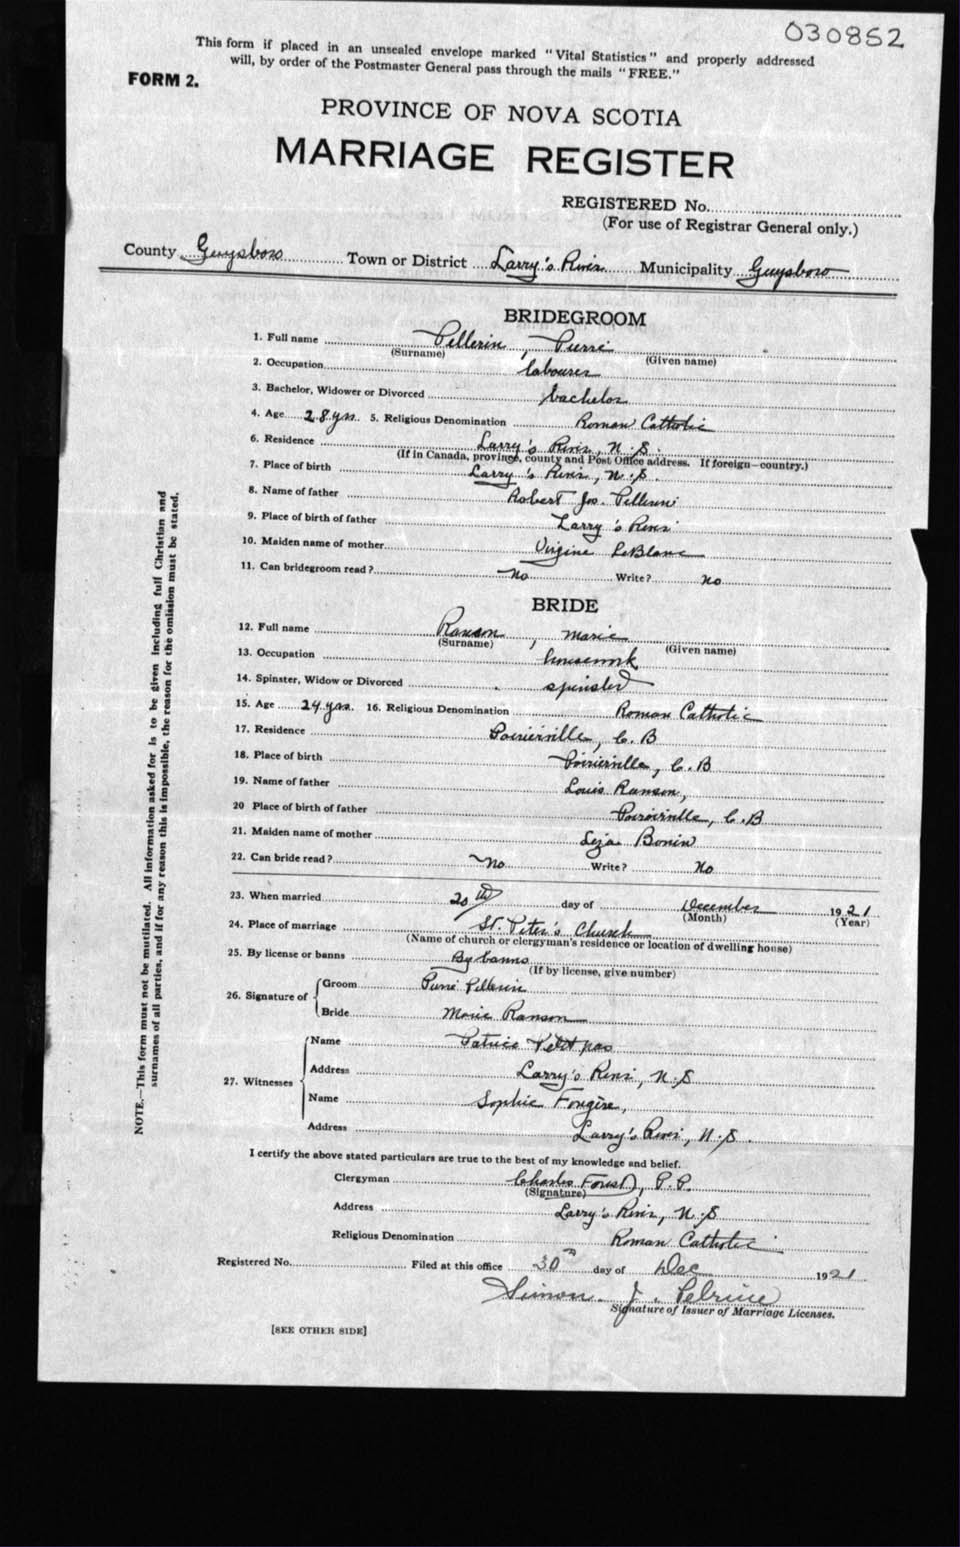 030852
This form if placed in an unsealed envelope marked "Vital Statistics" and properly addressed
will, by order of the Postmaster General pass through the mails "FREE."
FORM 2.
PROVINCE OF NOVA SCOTIA
MARRIAGE REGISTER
REGISTERED No.
(For use of Registrar General only.)
County Guysboro Town or District Larry's River Municipality Guysboro
BRIDEGROOM
1. Full name Pellerin, Pierre
(Surname) (Given name)
2. Occupation labourer
3. Bachelor, Widower or Divorced bachelor
4. Age 28 yrs. 5. Religious Denomination Roman Catholic
6. Residence Larry's River, N.S.
(If in Canada, province, county and Post Office address. If foreign—country.)
7. Place of birth Larry's River, N.S.
8. Name of father Robert Jos. Pellerin
9. Place of birth of father Larry's River
10. Maiden name of mother Virgine LeBlanc
11. Can bridegroom read? No Write? no
BRIDE
12. Full name Ranson, Marie
(Surname) (Given name)
13. Occupation housework
14. Spinster, Widow or Divorced spinster
15. Age 24 yrs. 16. Religious Denomination Roman Catholic
17. Residence Poirierville, C.B
18. Place of birth Poirierville, C.B
19. Name of father Louis Ranson,
20 Place of birth of father Poirierville, C.B
21. Maiden name of mother Liza Bonin
22. Can bride read? No Write? No
23. When married 20th day of December 1921
(Month) (Year)
24. Place of marriage St. Peter's Church
(Name of church or clergyman's residence or location of dwelling house)
25. By license or banns By banns
(If by license, give number)
26. Signature of
Groom Pierre Pellerin
Bride Marie Ranson
27. Witnesses
Name Patrice Petitpas
Address Larry's River, N.S
Name Sophie Fougère,
Address Larry's River, N.S.
I certify the above stated particulars are true to the best of my knowledge and belief.
Clergyman Charles Forest, P.P.
(Signature)
Address Larry's River, N.S
Religious Denomination Roman Catholic
Registered No. Filed at this office 30th day of Dec 1921
Simon J. Pelrine
Signature of Issuer of Marriage Licenses.
[SEE OTHER SIDE]
NOTE.—This form must not be mutilated. All information asked for is to be given including full Christian and
surnames of all parties, and if for any reason this is impossible, the reason for the omission must be stated.